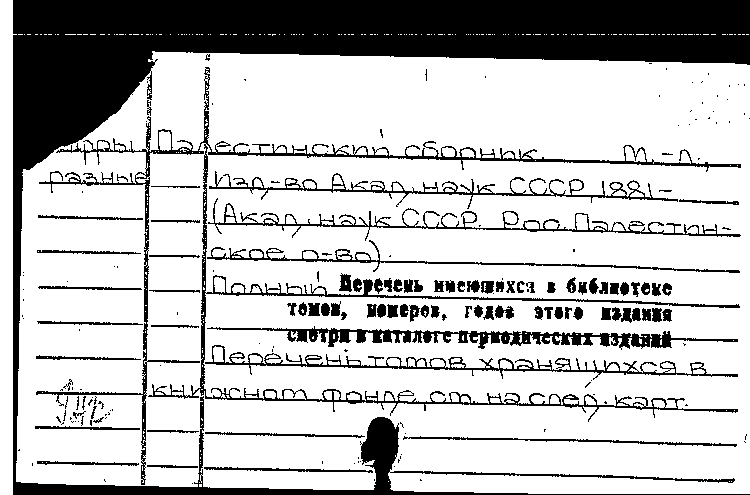 Шифры Палестинский сборник. М.-Л.,
разные Изд-во Акад. наук СССР, 1881-
(Акад. наук СССР. Рос. Палестин-
ское о-во)
Полный Перечень имеющихся в библиотеке
томов, номеров, годов этого издания
смотри в каталоге периодических изданий
Перечень томов, хранящихся в
книжном фонде, см. на след. карт.